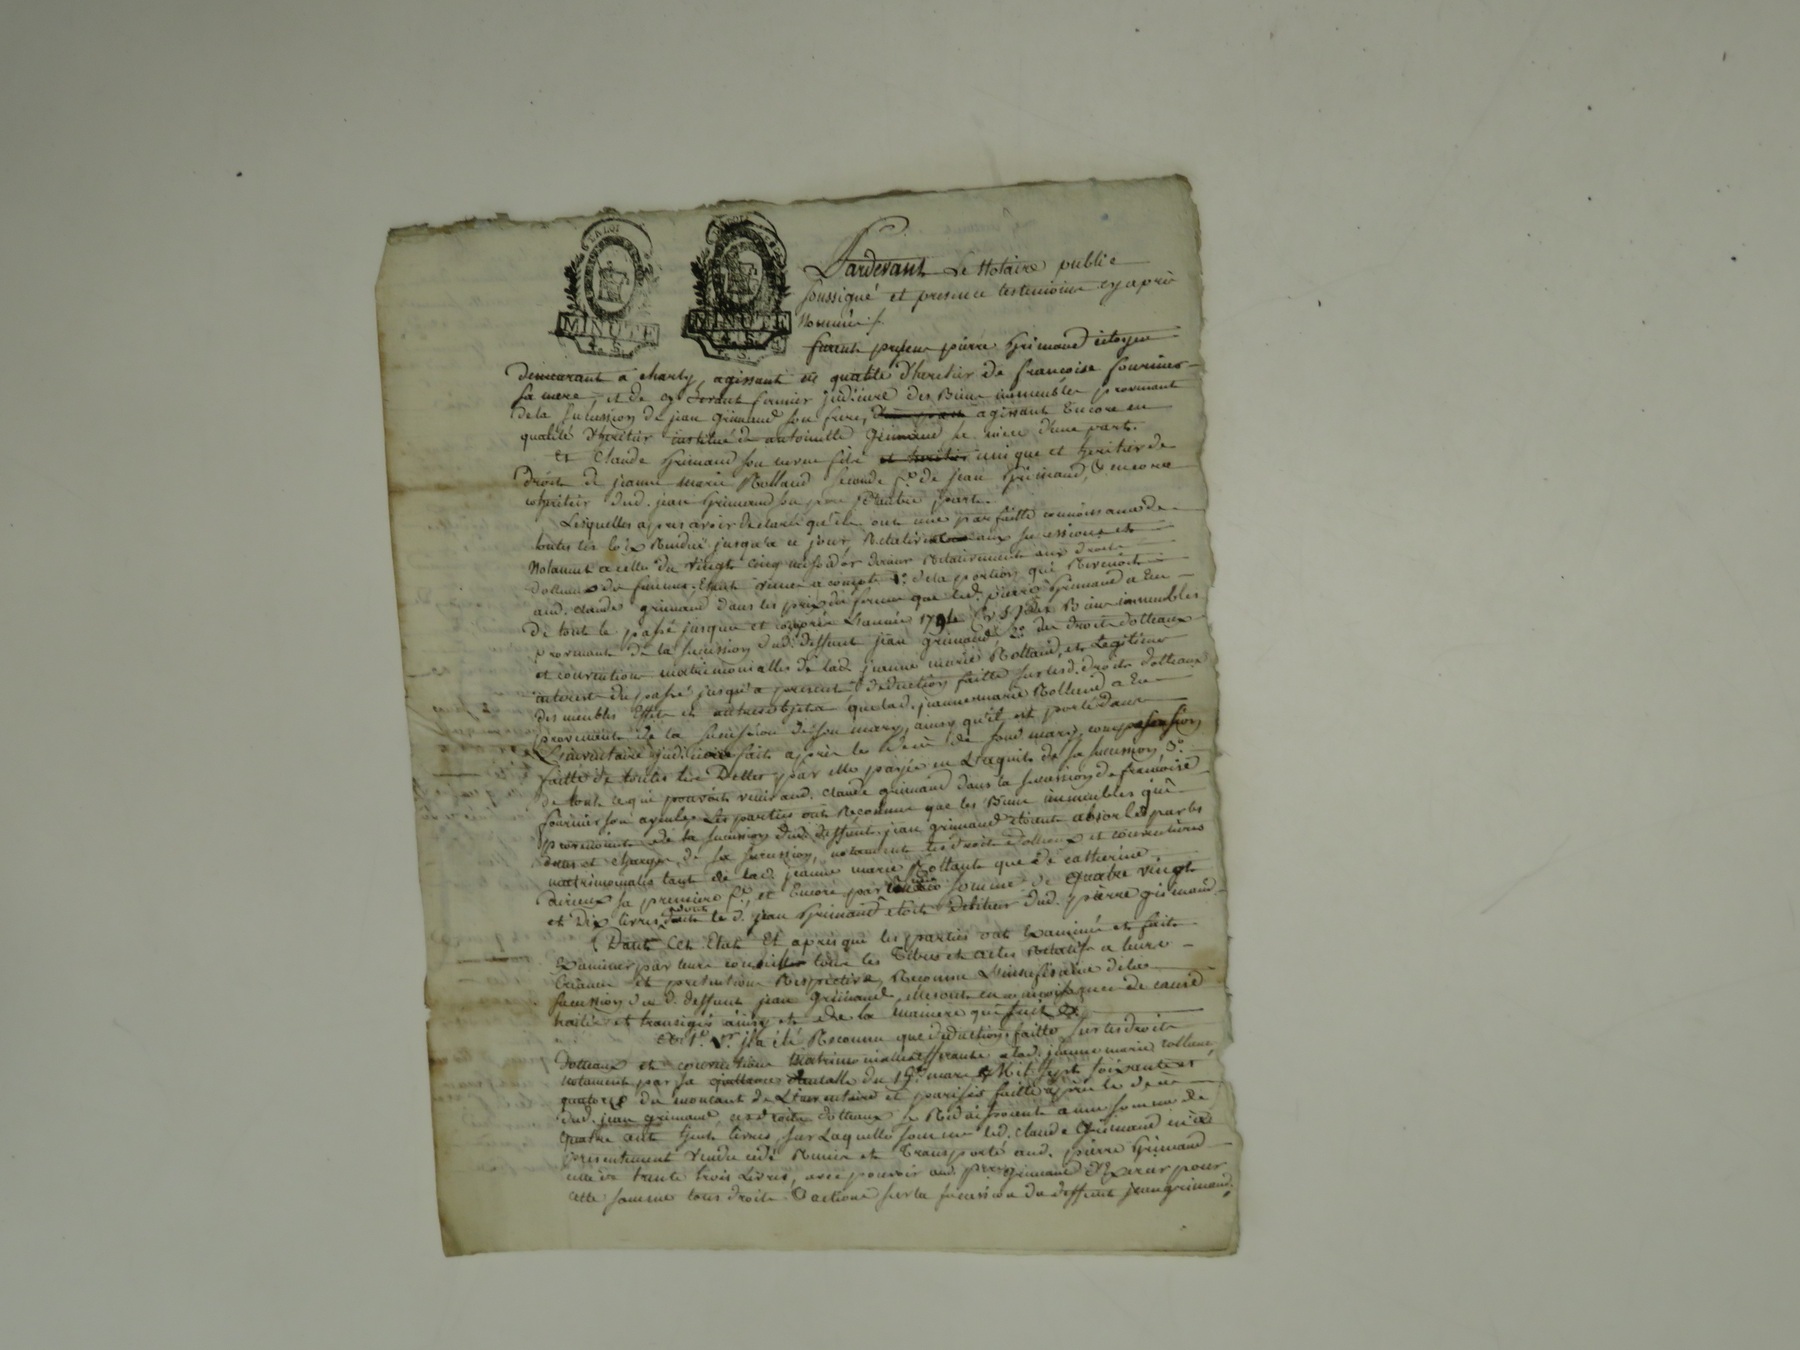 LA LOI
MINUTE
4. S.
MINUTE
4. S.
Pardevant Le Notaire public
soussigné et presence des temoins cy apres
Nommés /.
furent presens pierre Grimaud citoyen
demeurant a charly, agissant en qualité d'heritier de françoise fournier
sa mere, et de cy devant fermier judiciaire des Biens immeubles provenant
de la succession de jean Grimaud son frere, agissant Encore en
qualité d'heritier institué de antoinette Grimaud sa niece d'une part.
Et Claude Grimaud son neveu fils et heritier unique et heritier de
droit de jeanne marie Rolland seconde f.e de jean Grimaud, & encore
coheritier dud. jean Grimaud son pere d'autre part.
Lesquelles apres avoir declaré qu'ils ont une parfaitte connoissance de
toutes les loix Rendues jusqu'a ce jour Relatives aux successions et
Notament a celle du vingt cinq Relativement aux droits
dotteaux des femmes. Etant venus a compte 1.° de la portion qui Revenoit
aud. claude grimaud dans les prix de ferme que led. pierre Grimaud a Eu
de tout le passé jusques et compris L'année 1794 des Biens immeubles
provenant de la succession dud. deffunt jean grimaud, 2.° des droits dotteaux
et conventions matrimonialles de lad. jeanne marie Rolland, et Legitimes
interest du passé jusqu'a present, deduction faitte sur lesd. droits dotteaux
des meubles Effets et autres objets que lad. jeanne marie Rolland a Eu
provenants de la succession de son mary, ainsy qu'il est porté dans
L'inventaire judiciaire fait apres le deces de son mary, compensation
faitte de toutes les Dettes par elle payées en L'acquit de sa succession, 3.°
de tout ce qui pouvoit venir aud. claude grimaud dans la succession de françoise
fournier son ayeule, Les parties ont Reconnu que les Biens immeubles qui
provenoient de la succession dud. deffunt jean grimaud etoient absorbés par les
dettes et charges de sa succession, notament les droits dotteaux et conventions
matrimonialles tant de lad. jeanne marie Rolland que de catherine
sa premiere f.e, et Encore par la somme de quatre vingt
et Dix livres dont led. jean Grimaud etoit Debiteur dud. pierre grimaud
Dans Cet Etat Et apres que les parties ont Examiné et fait
Examiner par leurs conseils tous les Titres et actes Relatifs a leurs
Creances et pretentions Respectives, Reconnu L'insuffisance de la
succession dud. deffunt jean Grimaud, elles ont en consequence de ce
traité et transigé ainsy et de la maniere que suit
1.° Il a été Reconnu que deduction faitte sur les droits
dotteaux et conventions matrimonialles a lad. jeanne marie rolland,
notament par sa quittance du 19.e mars Mil sept soixante et
quatorze du montant de L'inventaire et faitte après le deces
dud. jean grimaud, ces droits dotteaux se Reduisoient a une somme de
quatre cent trente livres, sur Laquelle somme led. claude Grimaud a
presentement vendu cedé Remis et Transporté aud. pierre Grimaud
celle de trente trois Livres, avec pouvoir aud. pierre grimaud d'Exercer pour
cette somme tous droits & actions sur la succession du deffunt jean grimaud,